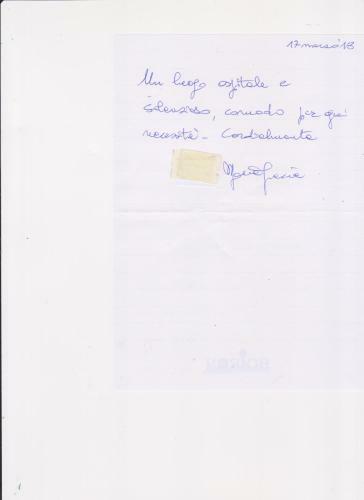 17 marzo 18
Un luogo ospitale e
silenzioso, comodo per ogni
necessità - Cordialmente